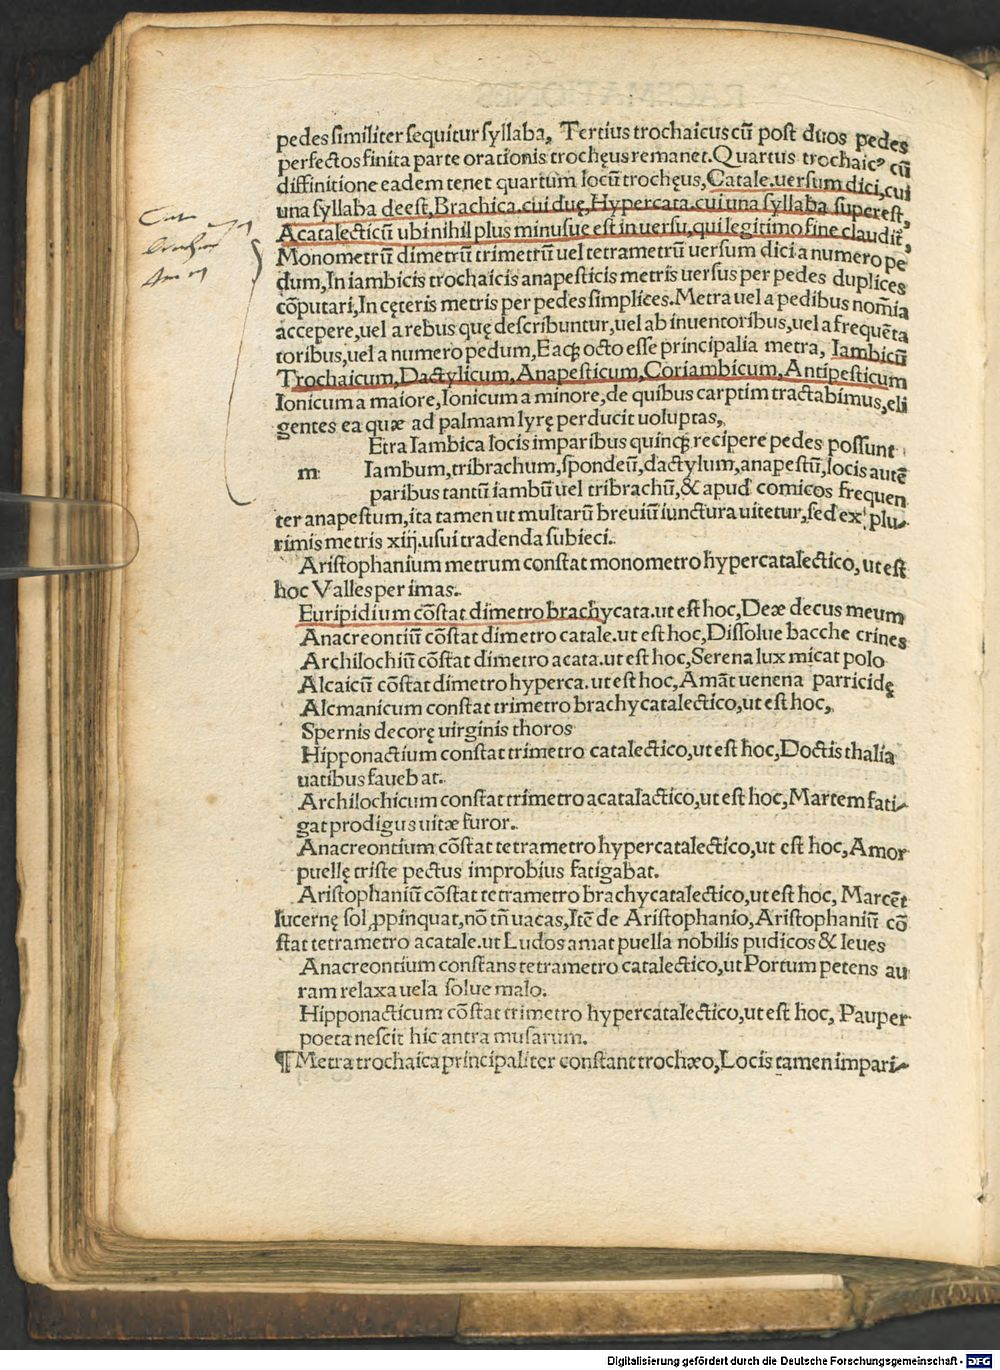 pedes similiter sequitur syllaba, Tertius trochaicus cū post duos pedes
perfectos finita parte orationis trochęus remanet. Quartus trochaicꝰ cū
diffinitione eadem tenet quartum locū trochęus, Catale. uersum dici, cui
una syllaba deest, Brachica. cui duę, Hypercata. cui una syllaba superest,
Acatalecticū ubi nihil plus minusue est in uersu, qui legitimo fine claudit̄,
Monometrū dimetrū trimetrū uel tetrametrū uersum dici a numero pe
dum, In iambicis trochaicis anapesticis metris uersus per pedes duplices
cōputari, In cęteris metris per pedes simplices. Metra uel a pedibus nom̄ia
accepere, uel a rebus quę describuntur, uel ab inuentoribus, uel a frequēta
toribus, uel a numero pedum, Eaqꝫ octo esse principalia metra, Iambicū
Trochaicum, Dactylicum, Anapesticum, Coriambicum, Antipesticum
Ionicum a maiore, Ionicum a minore, de quibus carptim tractabimus, eli
gentes ea quæ ad palmam lyrę perducit uoluptas,
Etra Iambica locis imparibus quinqꝫ recipere pedes possunt
m Iambum, tribrachum, spondeū, dactylum, anapestū, locis autē
paribus tantū iambū uel tribrachū, & apud comicos frequen
ter anapestum, ita tamen ut multarū breuiū iunctura uitetur, sed ex plu-
rimis metris xiij. usui tradenda subieci.
Aristophanium metrum constat monometro hypercatalectico, ut est
hoc Valles per imas.
Euripidium cōstat dimetro brachycata. ut est hoc, Deæ decus meum
Anacreontiū cōstat dimetro catale. ut est hoc, Dissolue bacche crines
Archilochiū cōstat dimetro acata. ut est hoc, Serena lux micat polo
Alcaicū cōstat dimetro hyperca. ut est hoc, Amāt uenena parricidę
Alcmanicum constat trimetro brachycatalectico, ut est hoc,
Spernis decorę uirginis thoros
Hipponactium constat trimetro catalectico, ut est hoc, Doctis thalia
uatibus fauebat.
Archilochicum constat trimetro acatalactico, ut est hoc, Martem fati-
gat prodigus uitæ furor.
Anacreontium cōstat tetrametro hypercatalectico, ut est hoc, Amor
puellę triste pectus improbius fatigabat.
Aristophaniū cōstat tetrametro brachycatalectico, ut est hoc, Marcēt
lucernę sol ꝓpinquat, nō tn̄ uacas, Itē de Aristophanio, Aristophaniū cō
stat tetrametro acatale. ut Ludos amat puella nobilis pudicos & leues
Anacreontium constans tetrametro catalectico, ut Portum petens au
ram relaxa uela solue malo.
Hipponacticum cōstat trimetro hypercatalectico, ut est hoc, Pauper
poeta nescit hic antra musarum.
¶ Metra trochaica principaliter constant trochæo, Locis tamen impari-
Digitalisierung gefördert durch die Deutsche Forschungsgemeinschaft - DFG